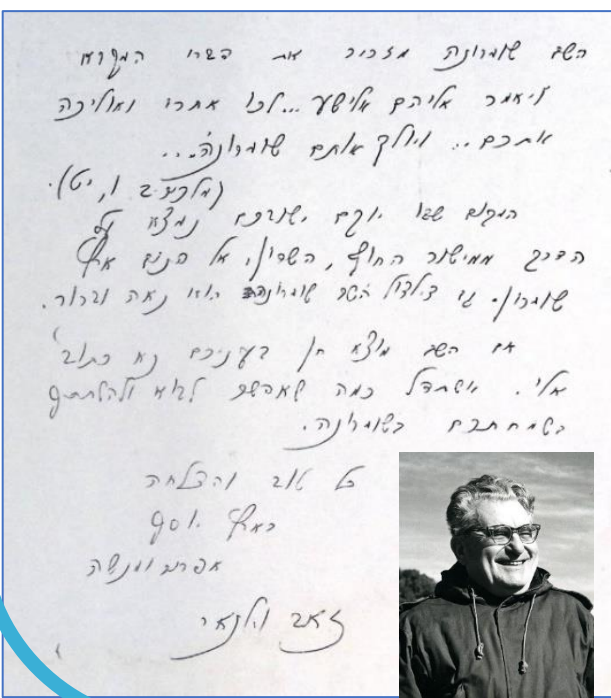 השם שומרונה מזכיר את דברי המקרא
ויאמר אליהם אלישע ...לכו אחרי ואוליכה
אתכם .. ויולך אותם שומרונה...
(מלכים ב ו, יט).
המקום שבו יוקם ישובכם נמצא על
הדרך ממישור החוף, השרון, אל הרום ארץ
שומרון. גם צילצול השם שומרונה הוא נאה וברור.
אם השם מוצא חן בעיניכם נא כתוב
אלי. אישתדל כמה שאפשר לבוא ולהשתתף
בשמחתכם בשומרונה.
כל טוב והצלחה
בארץ יוסף
אפרים ומנשה
זאב וילנאי